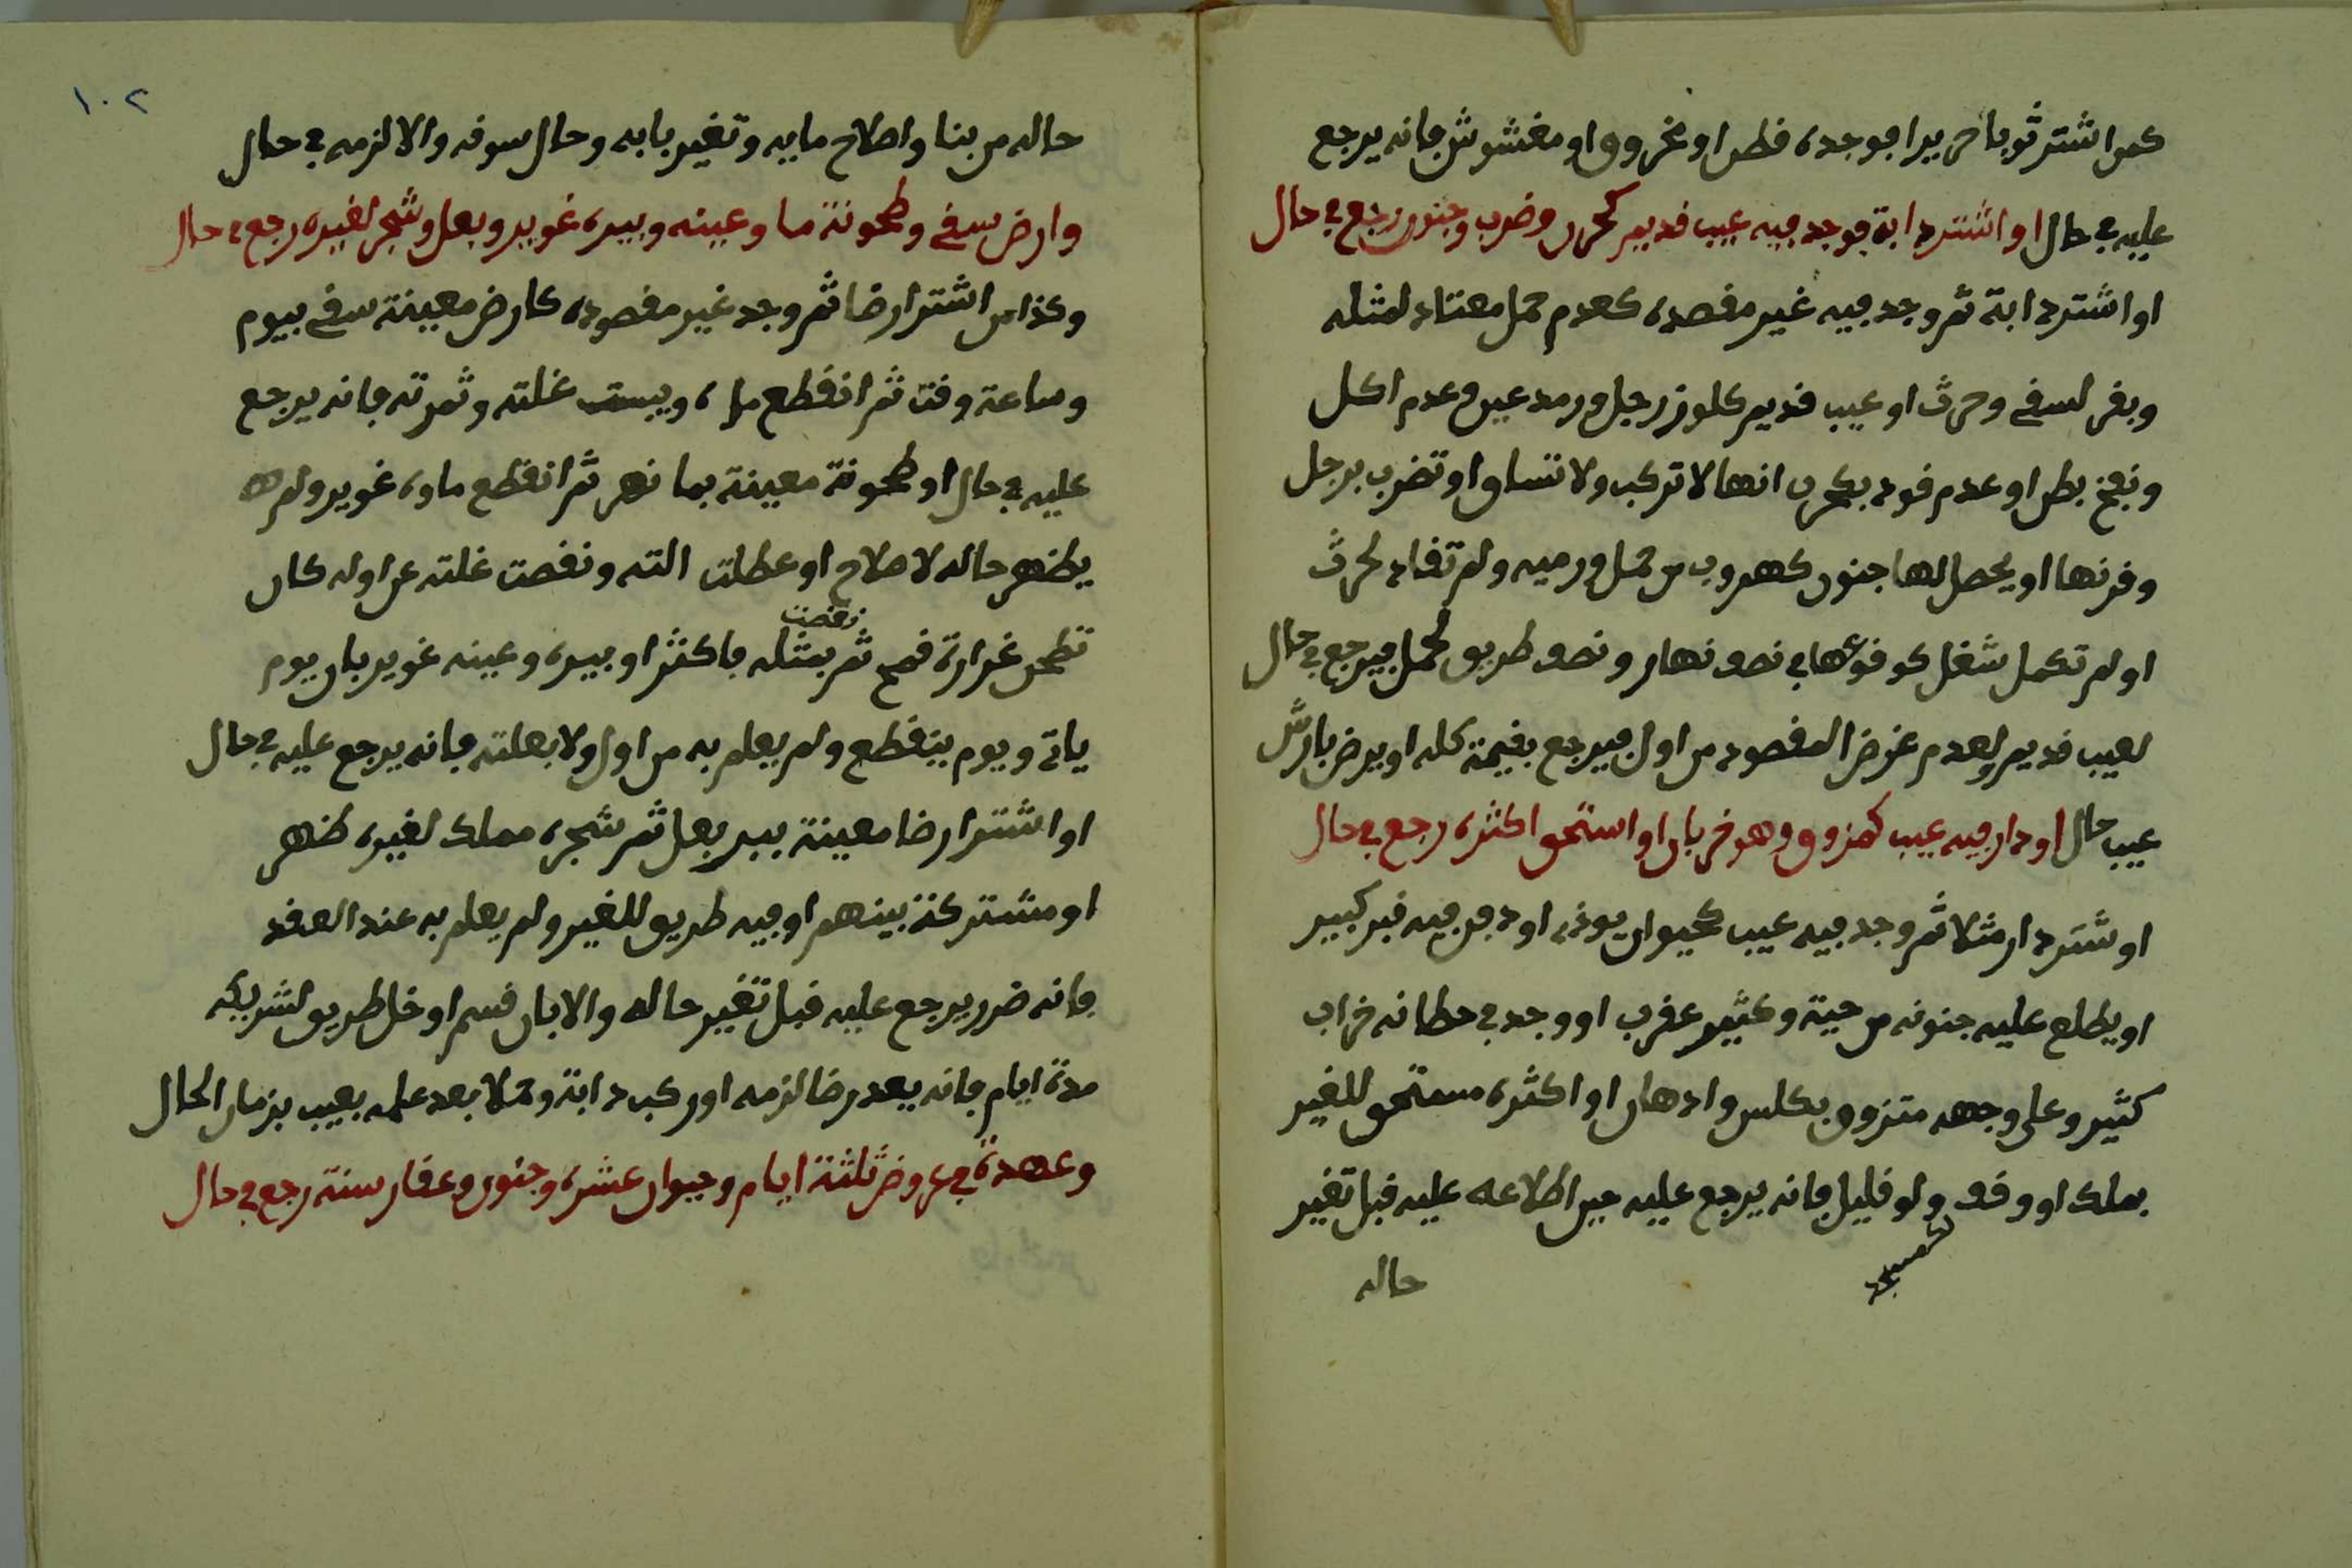 كمن اشتر ثوبا حريرا فوجده قطن او مخروق او مغشوش فانه يرجع
عليه في حال او اشتر دابة فوجد فيه عيب قديم كحرن وضرب وجنون رجع في حال
او اشتر دابة ثم وجد فيه غير مقصده كعدم حمل معتاد لمثله
وبقر لسقي وحرث او عيب قديم رجل ورمد عين وعدم اكل
ونفخ بطن او عدم قود بحرن انها لا تركب ولا تنساق او تضرب برجل
وقرنها او يحصل لها جنون كهروب من حمل ورميه ولم تقاد لحرث
او لم تكمل شغل في نصف نهار ونصف طريق لحمل فيرجع في حال
لعيب قديم ولعدم غرض المقصود من اول فيرجع بقيمة كله او يرض بارش
عيب حال او دار فيه عيب كمزوق وهو خربان او استحق اكثره رجع في حال
او شتر دار مثلا ثم وجد فيه عيب كحيوان يوذي او دفن فيه قبر كبير
او يطلع عليه جنونه من حية وكثير عقرب او وجد في حطانه خراب
كثير وعلى وجهه متزوق بكلس وادهان او اكثره مستحق للغير
بملك او وقف ولو قليل فانه يرجع عليه حين اطلاعه عليه قبل تغير
لمسجد
حاله
١٠٢
حاله من بنا واصلاح مابيه وتغير بابه وحال سوقه والا لزمه في حال
وارض سقي وطحونة ما وعينه وبيره غوير وبعل وشجر لغيره رجع في حال
وكذا من اشتر ارضا ثم وجد غير مقصوده كارض معينة سقي بيوم
وساعة وقت ثم انقطع ماه ويبست غلته وثمرته فانه يرجع
عليه في حال او طحونة معينة بما نهر ثم انقطع ماوه غوير ولم
يظهر حاله لاصلاح او عطلت الته ونقصت غلته عن اوله كان
تطحن غرارة قمح ثم نقصت بمثله فاكثر او بيره وعينه غوير بان يوم
ياتي ويوم ينقطع ولم يعلم به من اول ولا بعلته فانه يرجع عليه في حال
او اشتر ارضا معينة ببير بعل ثم شجره مملك لغيره ظهر
او مشتركة بينهم او فيه طريق للغير ولم يعلم به عند العقد
فانه ضرر يرجع عليه قبل تغير حاله والا بان قسم او خل طريق لشريكه
مدة ايام فانه يعد رضا لزمه او ركب دابة وحملا بعد علمه بعيب بزمان الحال
وعهدة في عروض ثلثة ايام وحيوان عشره وجنون وعقار سنة رجع في حال